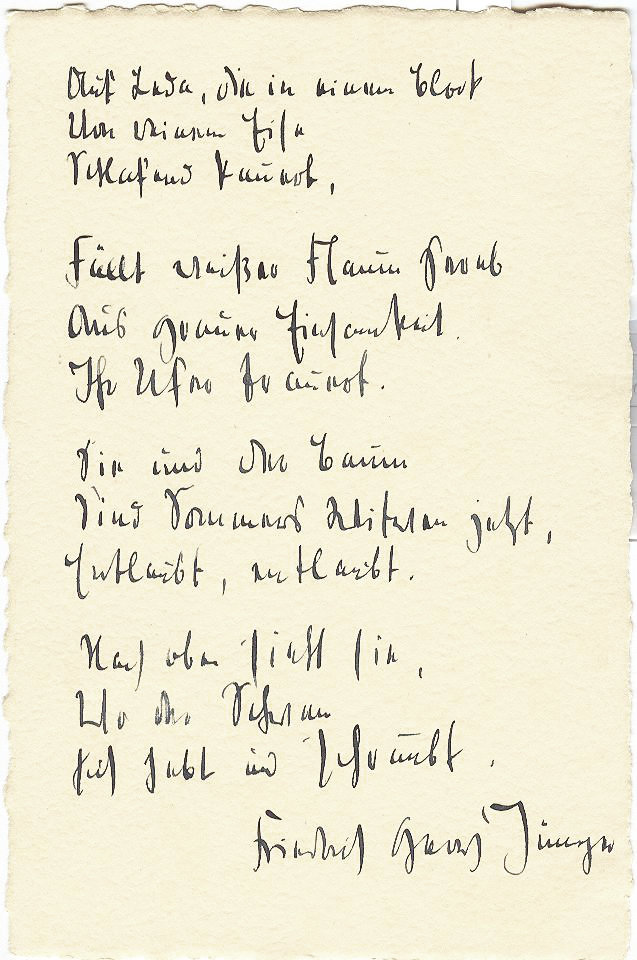 Auf Leda, die in einem Block
Von reinem Eise
Schlafend kauert,
Fällt weißer Flaum herab
Aus grauer Einsamkeit.
Ihr Ufer trauert.
Sie und der Baum
Sind Sommers Witwen jetzt,
Entlaubt, entlaubt.
Nach oben sieht sie,
Wo der Schwan
sich hebt und schraubt.
Friedrich Georg Jünger